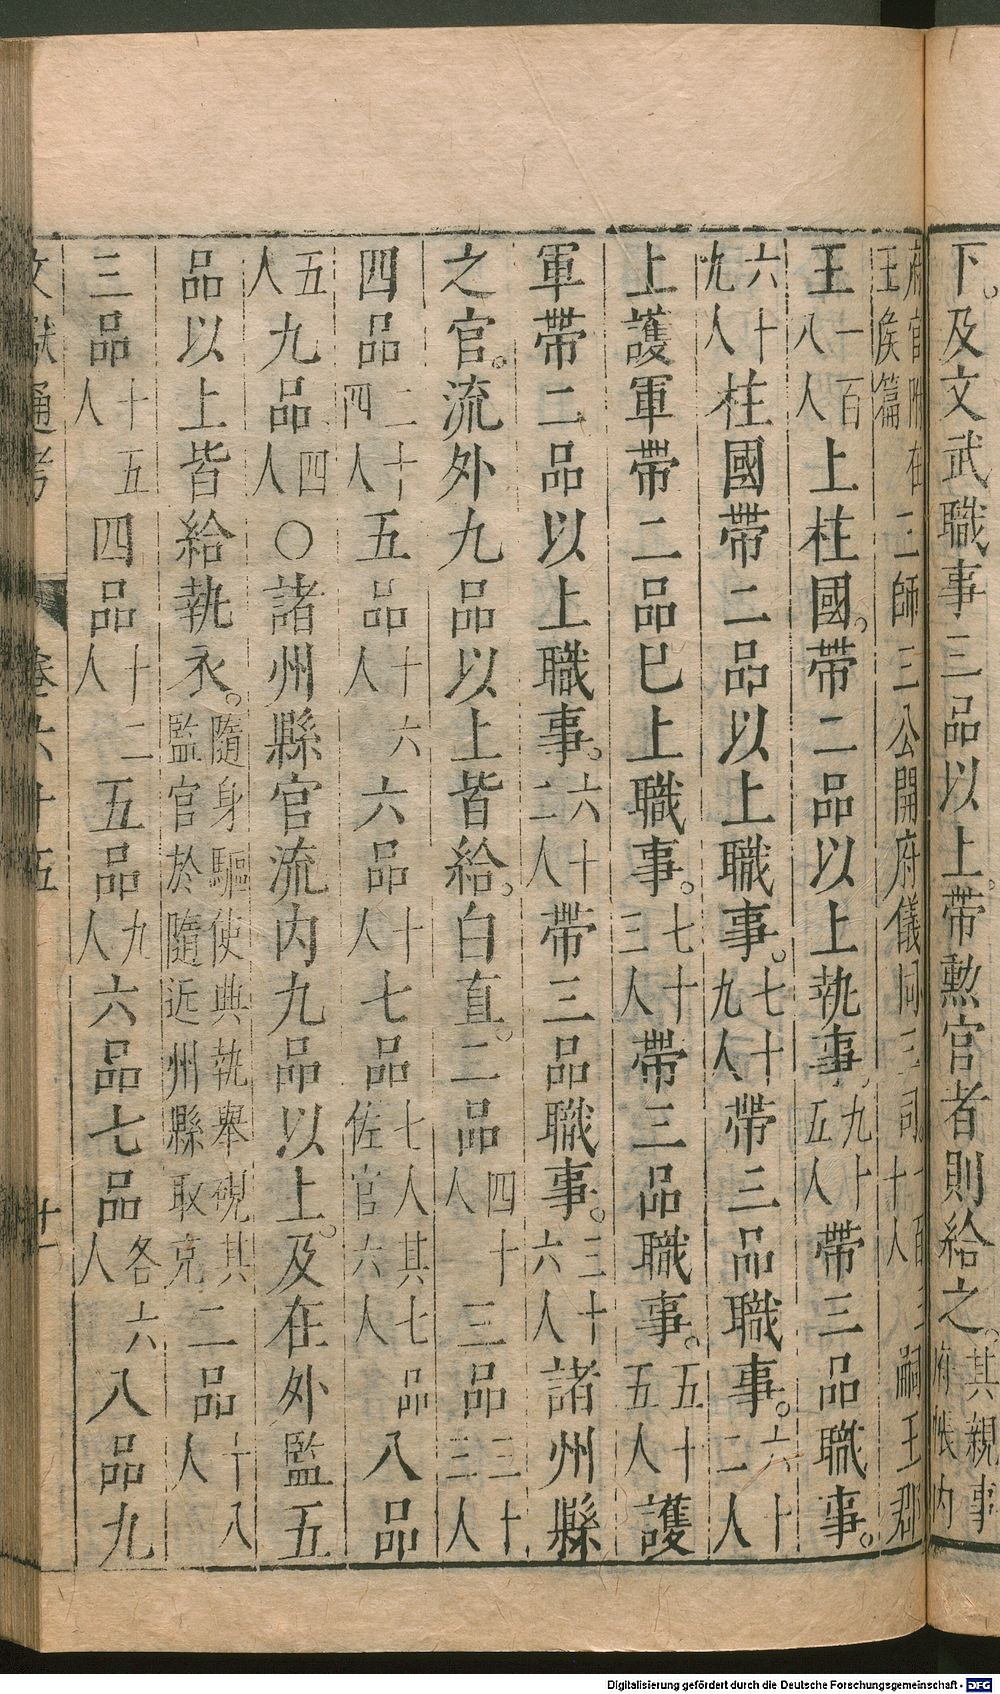 下及文武職事三品以上帶勲官者則給之其親事府帳內
府官附在王侯篇三師三公開府儀同三司一百三十人嗣王郡
王一百八人上柱國帶二品以上執事九十五人帶三品職事
六十九人柱國帶二品以上職事七十九人帶三品職事六十二人
上護軍帶二品已上職事七十三人帶三品職事五十五人護
軍帶二品以上職事六十二人帶三品職事三十六人諸州縣
之官流外九品以上皆給白直二品四十人三品三十三人
四品二十四人五品十六人六品十人七品七人其七品佐官六人八品
五人九品四人○諸州縣官流內九品以上及在外監五
品以上皆給執衣隨身驅使典執舉硯其監官於隨近州縣取充二品十八人
三品十五人四品十二人五品九人六品七品各六人八品九
文獻通考 卷六十五 十一
Digitalisierung gefördert durch die Deutsche Forschungsgemeinschaft - DFG